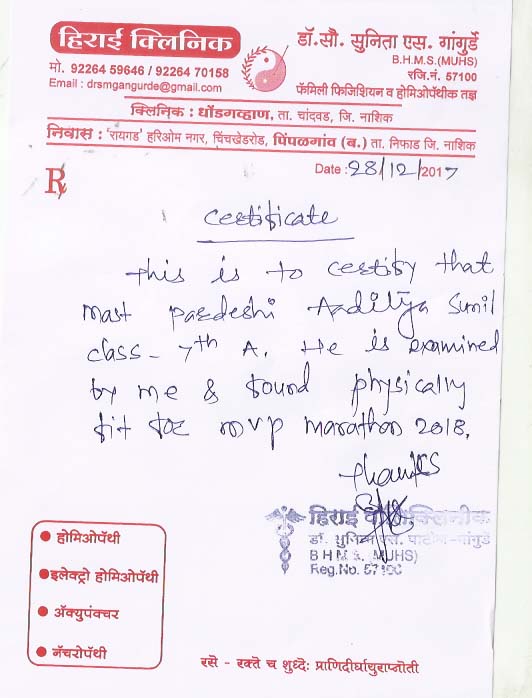 हिराई क्लिनिक
मो. 92264 59646 / 92264 70158
Email : drsmgangurde@gmail.com
डॉ.सौ. सुनिता एस. गांगुर्डे
B.H.M.S.(MUHS)
रजि.नं. 57100
फॅमिली फिजिशियन व होमिओपॅथीक तज्ञ
क्लिनिक : धोंडगव्हाण, ता. चांदवड, जि. नाशिक
निवास : 'रायगड' हरिओम नगर, चिंचखेडरोड, पिंपळगांव (ब.) ता. निफाड जि. नाशिक
Rx
Date : 28/12/2017
Certificate
This is to certify that
Mast Pardeshi Aaditya Sunil
class - 7th A. He is examined
by me & found physically
fit for MVP Marathon 2018.
Thanks
हिराई क्लिनीक
डॉ. सुनिता एस. गांगुर्डे
B H M S. (MUHS)
Reg.No. 57100
होमिओपॅथी
इलेक्ट्रो होमिओपॅथी
ॲक्युपंक्चर
नॅचरोपॅथी
रसे - रक्ते च शुध्देः प्राणिदीर्घायुराप्नोती